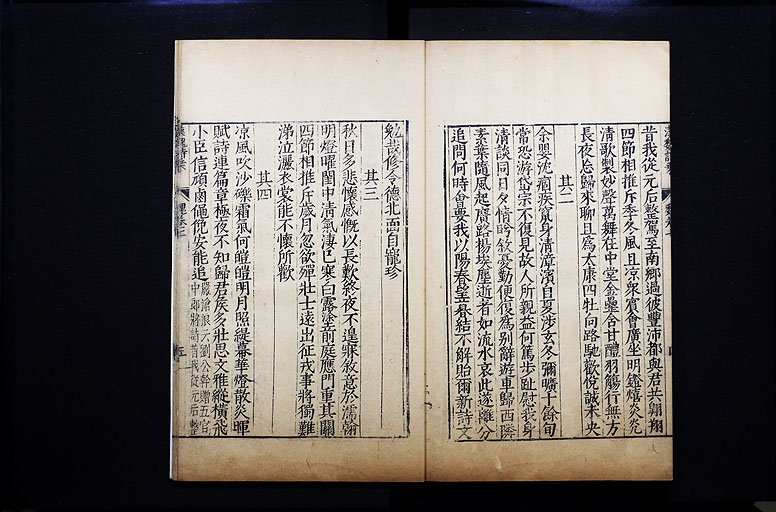 昔我從元后整駕至南鄉過彼豐沛都與君共翱翔
四節相推斥季冬風且涼衆賓會廣坐明鐙熺炎光
清歌製妙聲萬舞在中堂金罍含甘醴羽觴行無方
長夜忘歸來聊且爲太康四牡向路馳歡悅誠未央
其二
余嬰沈痼疾竄身清漳濱自夏涉玄冬彌曠十餘旬
常恐游岱宗不復見故人所親一何篤步趾慰我身
清談同日夕情眄敘憂勤便復爲別辭遊車歸西隣
素葉隨風起廣路揚埃塵逝者如流水哀此遂離分
追問何時會要我以陽春望慕結不解貽爾新詩文
勉哉修令德北面自寵珍
其三
秋日多悲懷感慨以長歎終夜不遑寐敘意於濡翰
明燈曜閨中清氣淒已寒白露塗前庭應門重其關
四節相推斥歲月忽欲殫壯士遠出征戎事將獨難
涕泣灑衣裳能不懷所歡
其四
凉風吹沙礫霜氣何皚皚明月照緹幕華燈散炎暉
賦詩連篇章極夜不知歸君侯多壯思文雅縱橫飛
小臣信頑鹵僶俛安能追
嚴滄浪云劉公幹贈五官
中郎將詩昔我從元后整